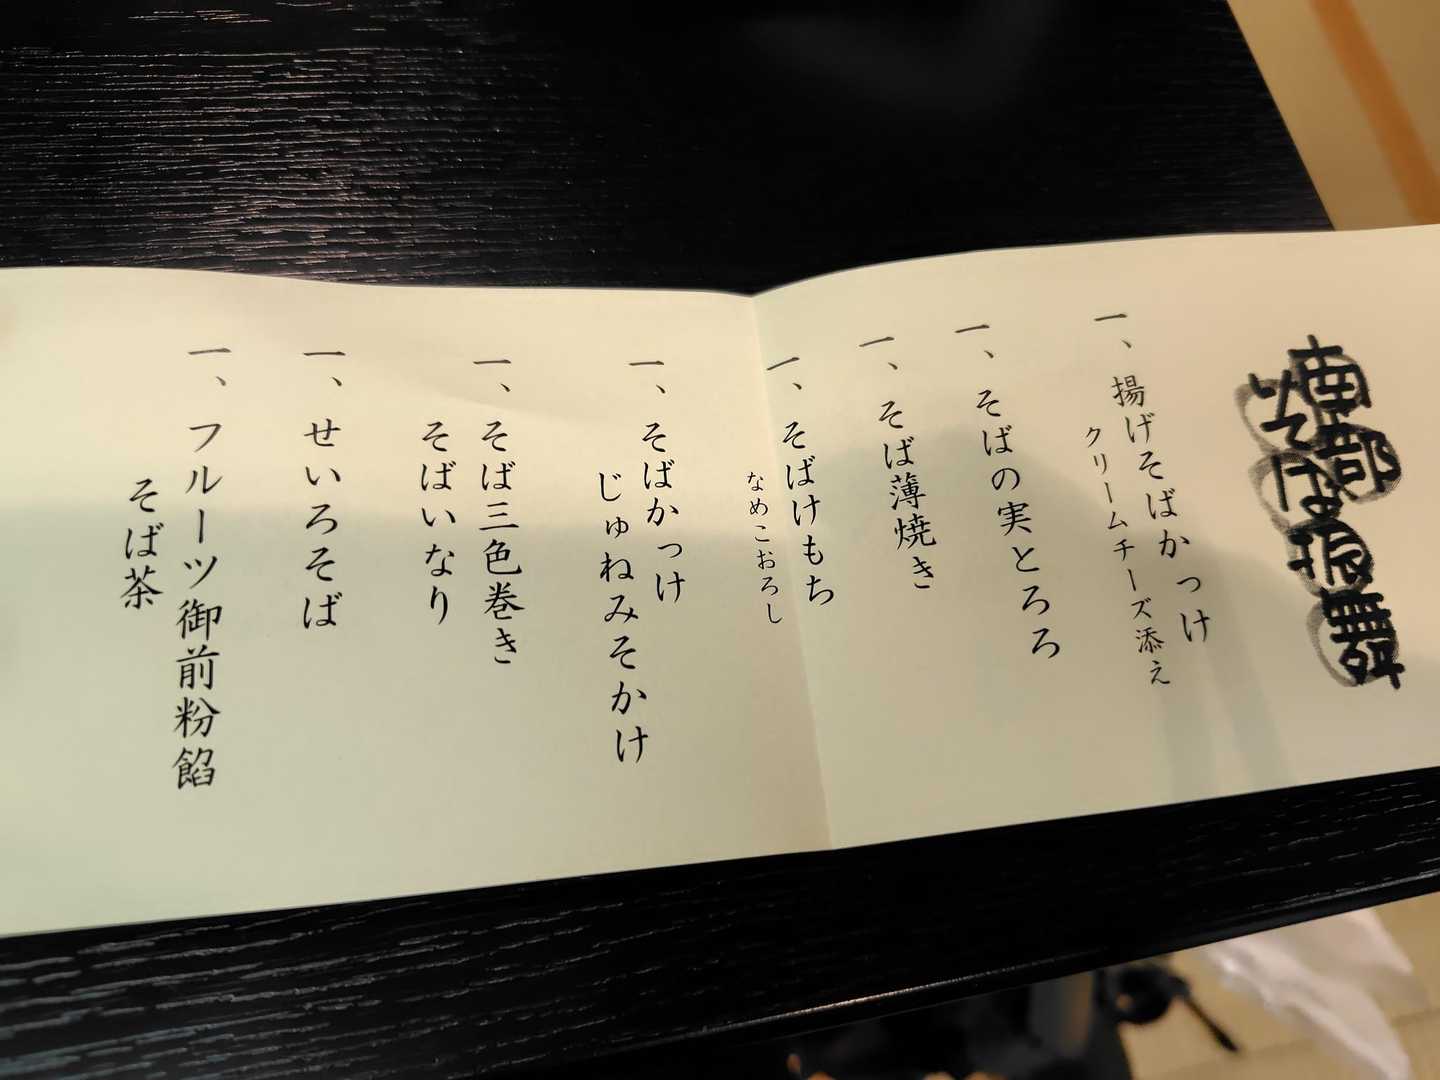 南部
そば振舞
一、揚げそばかっけ
クリームチーズ添え
一、そばの実とろろ
一、そば薄焼き
一、そばけもち
なめこおろし
一、そばかっけ
じゅねみそかけ
一、そば三色巻き
そばいなり
一、せいろそば
一、フルーツ御前粉餡
そば茶